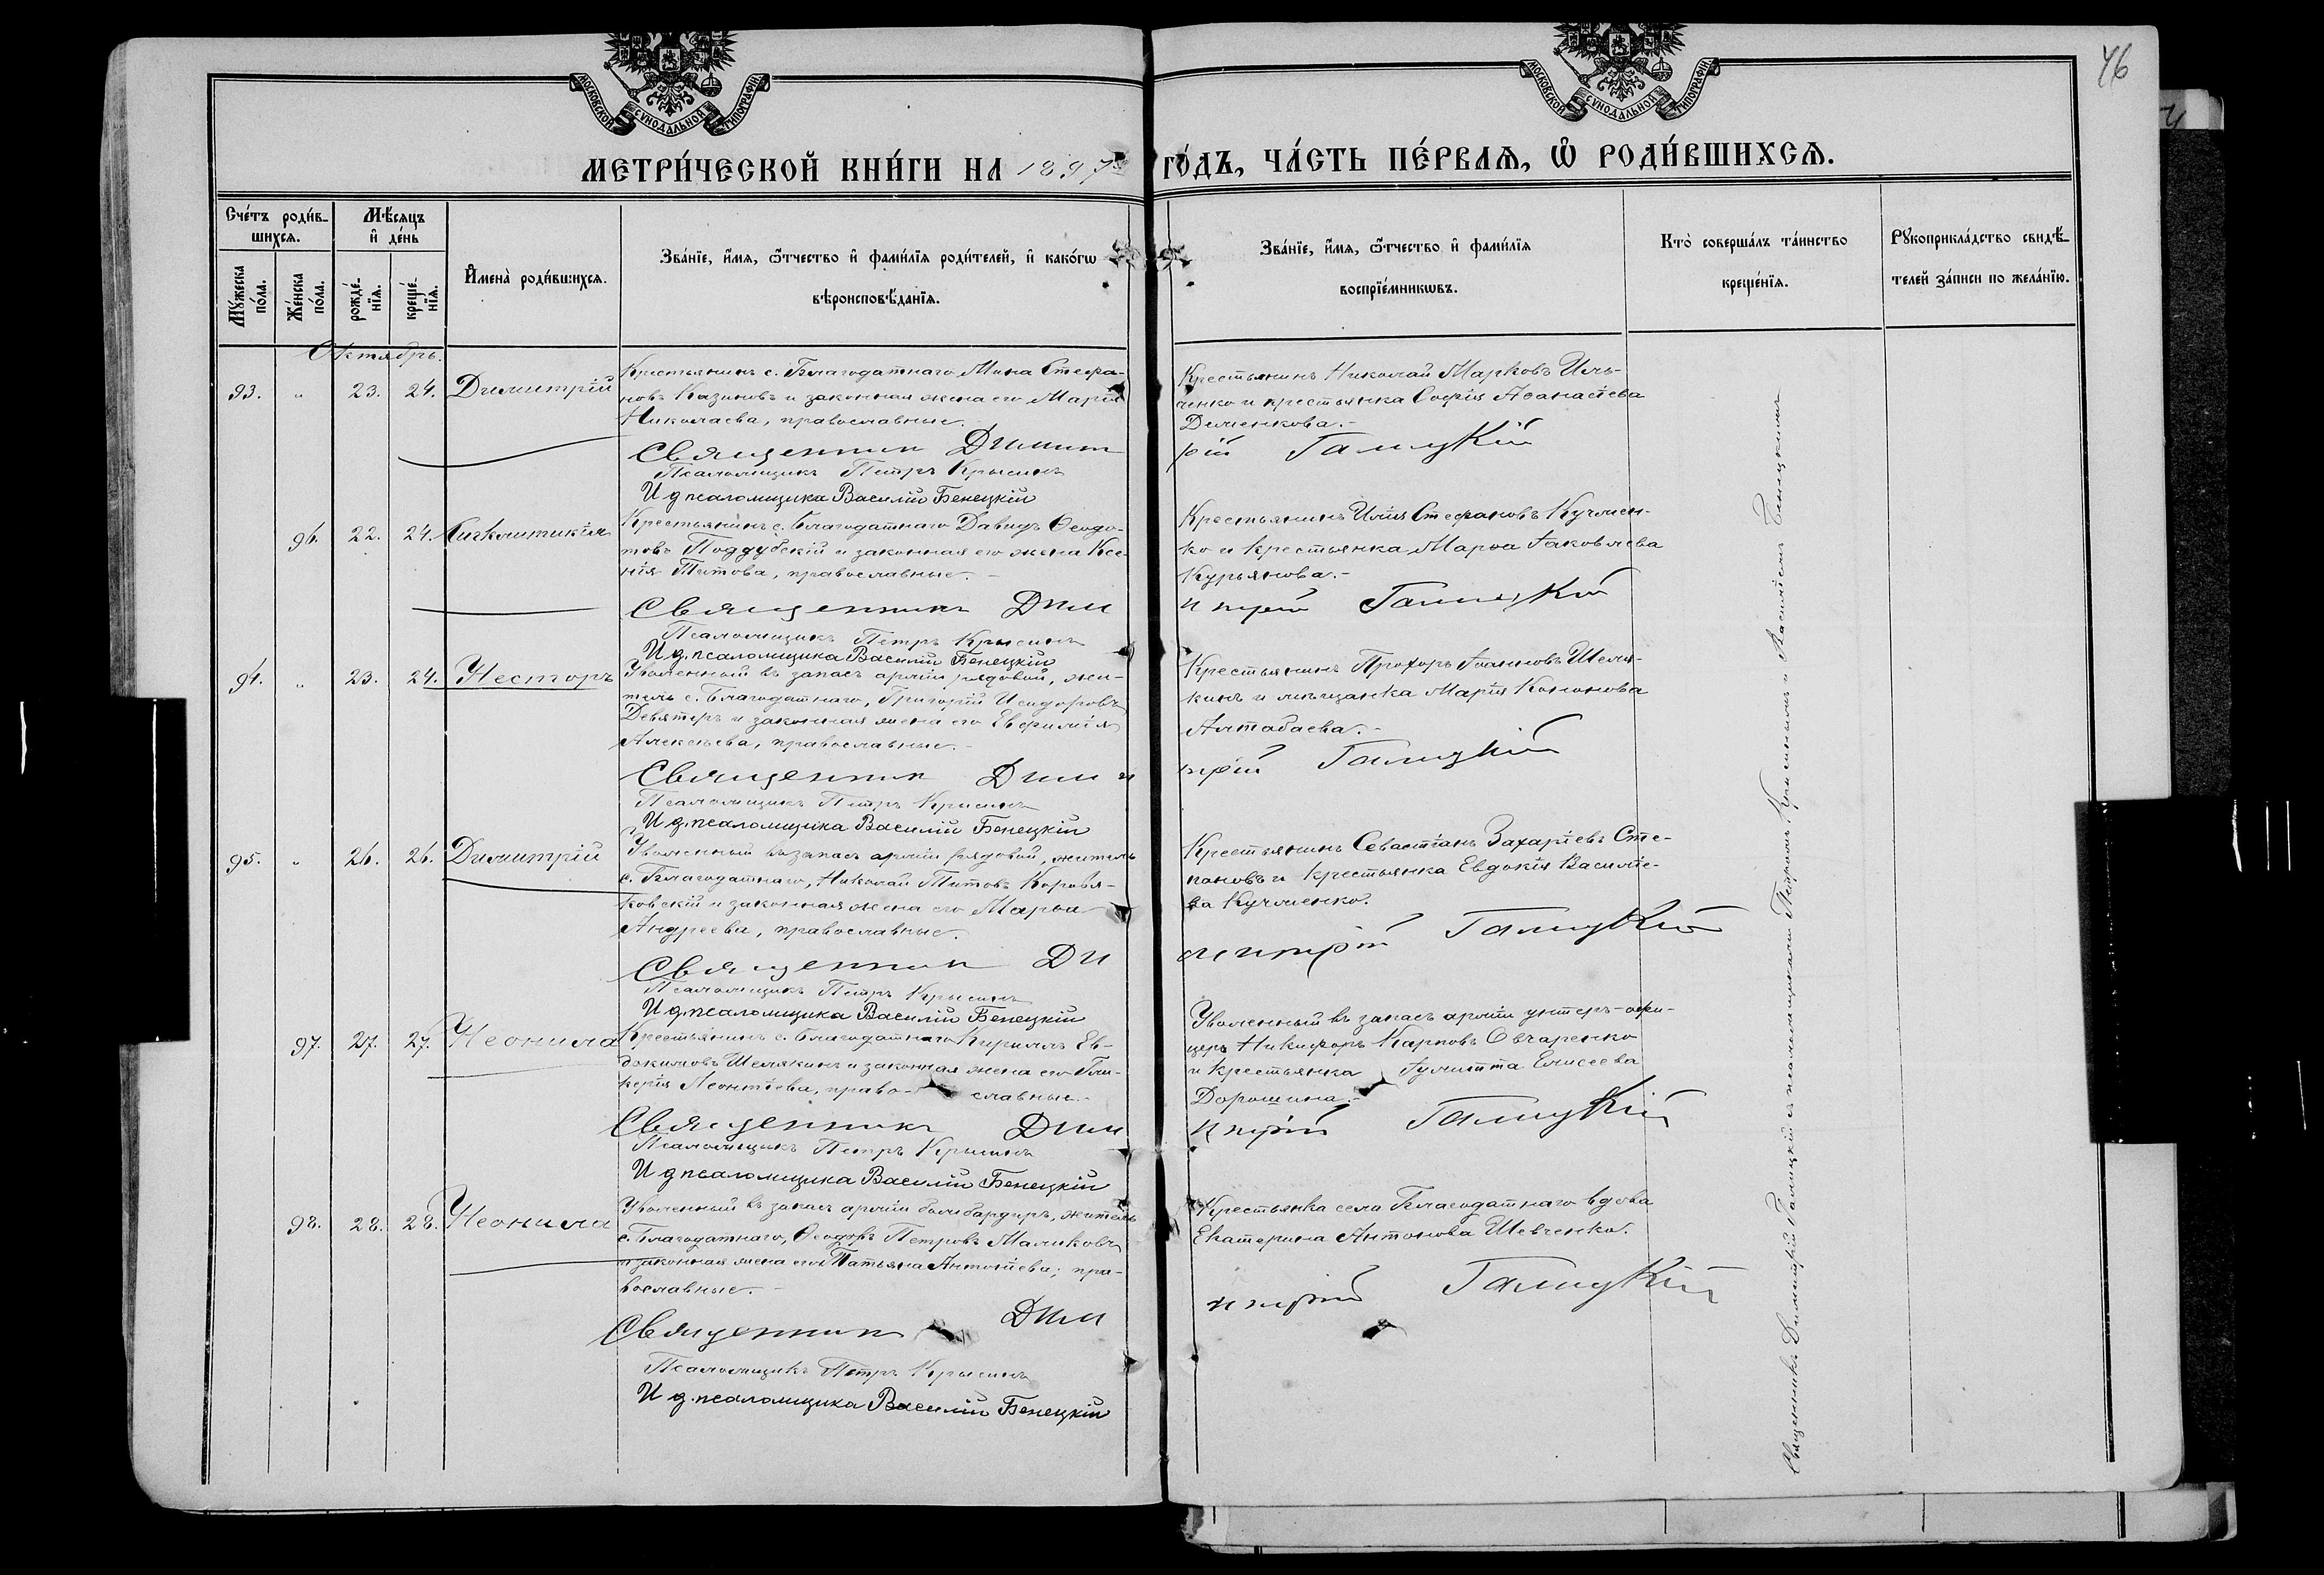 46
МОСКОВСКОЙ СѴНОДАЛЬНОЙ ТИПОГРАФІИ
МОСКОВСКОЙ СѴНОДАЛЬНОЙ ТИПОГРАФІИ
МЕТРИ́ЧЕСКОЙ КНИ́ГИ НА 1897й ГО́ДЪ, ЧА́СТЬ ПЕ́РВАѦ, Ѡ҆ РОДИ́ВШИХСѦ.
Сче́тъ роди́в-
шихсѧ.
Мꙋ́жеска по́ла.
Же́нска по́ла.
Мѣ́сѧцъ
и҆ де́нь
рожде́-нїѧ.
креще́-нїѧ.
И҆мена̀ роди́вшихсѧ.
Зва́нїе, и҆́мѧ, ѻ҆́тчество и҆ фами́лїѧ роди́телей, и҆ како́гѡ
вѣроисповѣ́данїѧ.
Зва́нїе, и҆́мѧ, ѻ҆́тчество и҆ фами́лїѧ
воспрїе́мникѡвъ.
Кто̀ соверша́лъ та́инство
креще́нїѧ.
Рꙋкоприкла́дство свидѣ́-
телей за́писи по жела́нїю.
Октябрь.
93. " 23. 24. Димитрій
Крестьянинъ с. Благодатнаго Мина Стефа-
новъ Казиковъ и законная жена его Марія
Николаева, православные.
Крестьянинъ Николай Марковъ Иль-
ченко и крестьянка Софія Аѳанасіева
Деменкова.-
Священник Димит рій Галицкій
Псаломщикъ Петръ Крысинъ
И д псаломщика Василій Бенецкій
96. 22. 24.
Крестьянинъ с. Благодатнаго Давидъ Ѳеодо-
товъ Поддубскій и законная его жена Ксе-
нія Титова, православные.-
Крестьянинъ Илія Стефановъ Кучмен-
ко и крестьянка Марѳа Іаковлева
Курьянова.-
Священникъ Дим итрій Галицкій
Псаломщикъ Петръ Крысинъ
И д. псаломщика Василій Бенецкій
94. " 23. 24. Несторъ
Уволенный въ запасъ арміи рядовой, жи-
тель с. Благодатнаго, Григорій Исидоровъ
Девятеръ и законная жена его Евфимія
Алексѣева, православные.-
Крестьянинъ Прохоръ Іоанновъ Шемя-
кинъ и мѣщанка Марія Кононова
Алтабаева.-
Священник Дими трій Галицкій
Псаломщикъ Петръ Крысинъ
И д. псаломщика Василій Бенецкій
95. " 26. 26. Димитрій
Уволенный въ запасъ арміи рядовой, житель
с. Благодатнаго, Николай Титовъ Коровя-
ковскій и законная жена его Марѳа
Андреева, православные.
Крестьянинъ Севастіанъ Захаріевъ Сте-
пановъ и крестьянка Евдокія Василіе-
ва Кучменко.
Священник Ди митрій Галицкій
Псаломщикъ Петръ Крысинъ
И д. псаломщика Василій Бенецкій
97. 27. 27. Неонила
Крестьянинъ с. Благодатнаго Кириллъ Ев-
докимовъ Шемякинъ и законная жена его Гли-
керія Леонтіева, право- славные.-
Уволенный въ запасъ арміи унтеръ-офи-
церъ Никифоръ Карповъ Овчаренко
и крестьянка Іулитта Елисеева
Дорошина.-
Священникъ Дим итрій Галицкій
Псаломщикъ Петръ Крысинъ
И д псаломщика Василій Бенецкій
98. 28. 28. Неонила
Уволенный въ запасъ арміи бомбардиръ, житель
с. Благодатнаго, Ѳеодоръ Петровъ Маликовъ
и законная жена его Татьяна Антоніева; пра-
вославные.-
Крестьянка села Благодатнаго вдова
Екатерина Антонова Шевченко.
Священник Дим итрій Галицкій
Псаломщикъ Петръ Крысинъ
И д. псаломщика Василій Бенецкій
Священникъ Димитрій Галицкій съ псаломщиками Петромъ Крысинымъ и Василіемъ Бенецкимъ